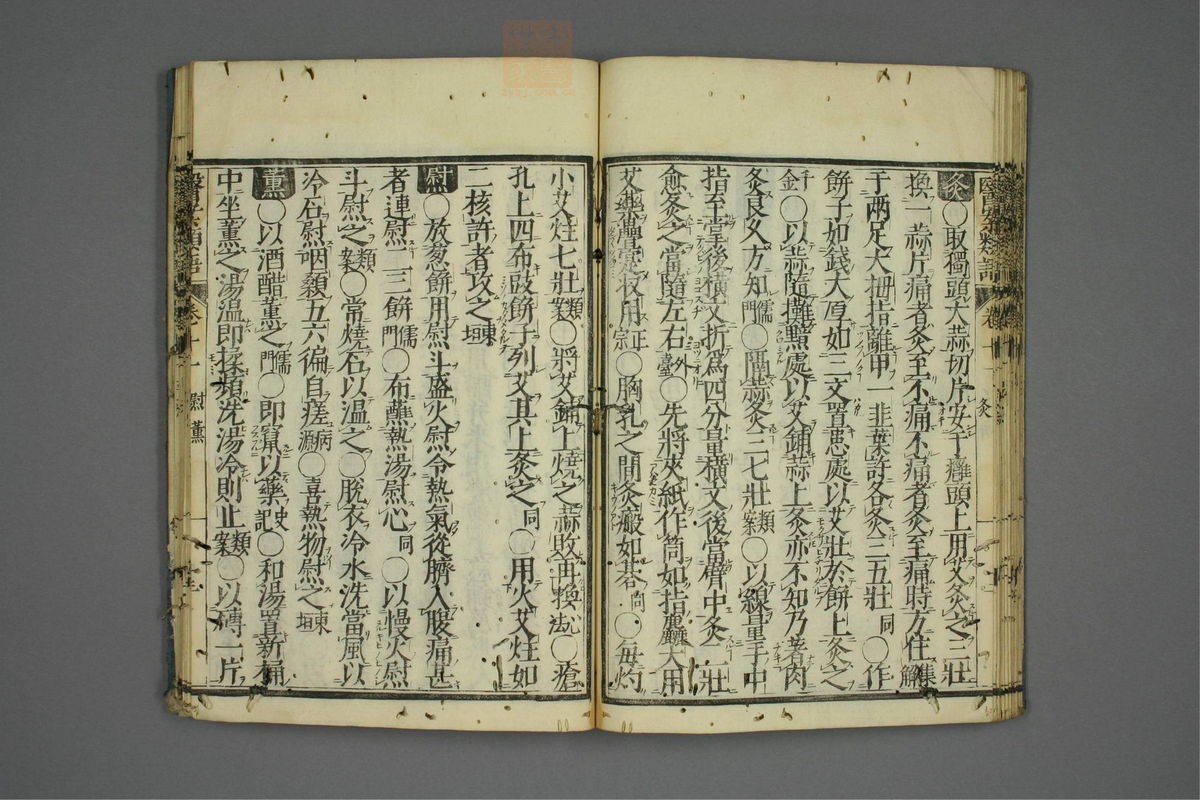 灸○取獨頭大蒜切片安于癰頭上用艾灸之三壯
換一蒜片痛者灸至不痛不痛者灸至痛時方住集解
于兩足大拇指離甲一韭葉許各灸三五壯同○作
餅子如錢大厚如三文置患處以艾壯於餅上灸之
千金○以蒜隨攤點處以艾鋪蒜上灸亦不知乃著肉
灸良久方知儒門○隔蒜灸三七壯類案○以線量手中
指至掌後橫文折為四分量橫文後當臂中灸一壯
愈灸之當隨左右外臺○先將夾紙作筒如指麤大用
艾藥疊定夜用正宗○胸乳之間灸瘢如棊同○每灼
小艾炷七壯類○將艾鋪上燒之蒜敗再換心法○瘡
孔上四布豉餅子列艾其上灸之同○用火艾炷如
二核許者攻之東垣
慰○放葱餅用慰斗盛火慰令熱氣從臍入腹痛甚
者連慰二三餅儒門○布蘸熱湯慰心同○以慢火慰
斗慰之類案○常燒石以溫之○脫衣冷水洗當風以
冷石慰咽顙五六徧自瘥病源○喜熱物慰之東垣
薰○以酒醋薰之儒門○即窠以藥史記○和湯置新桶
中坐薰之湯溫即揉頻洗湯冷則止類案○以磚一片